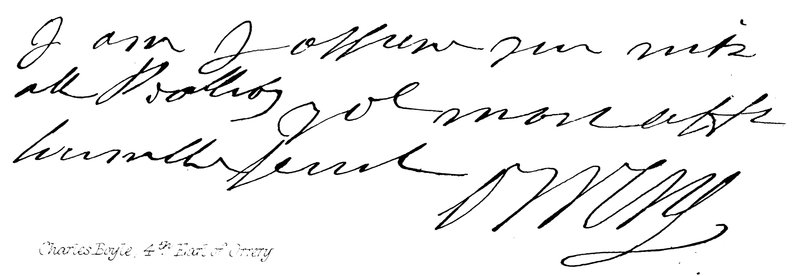 I am I assure you with
all yor most
humble servt
Orrery
Charles Boyle, 4th Earl of Orrery